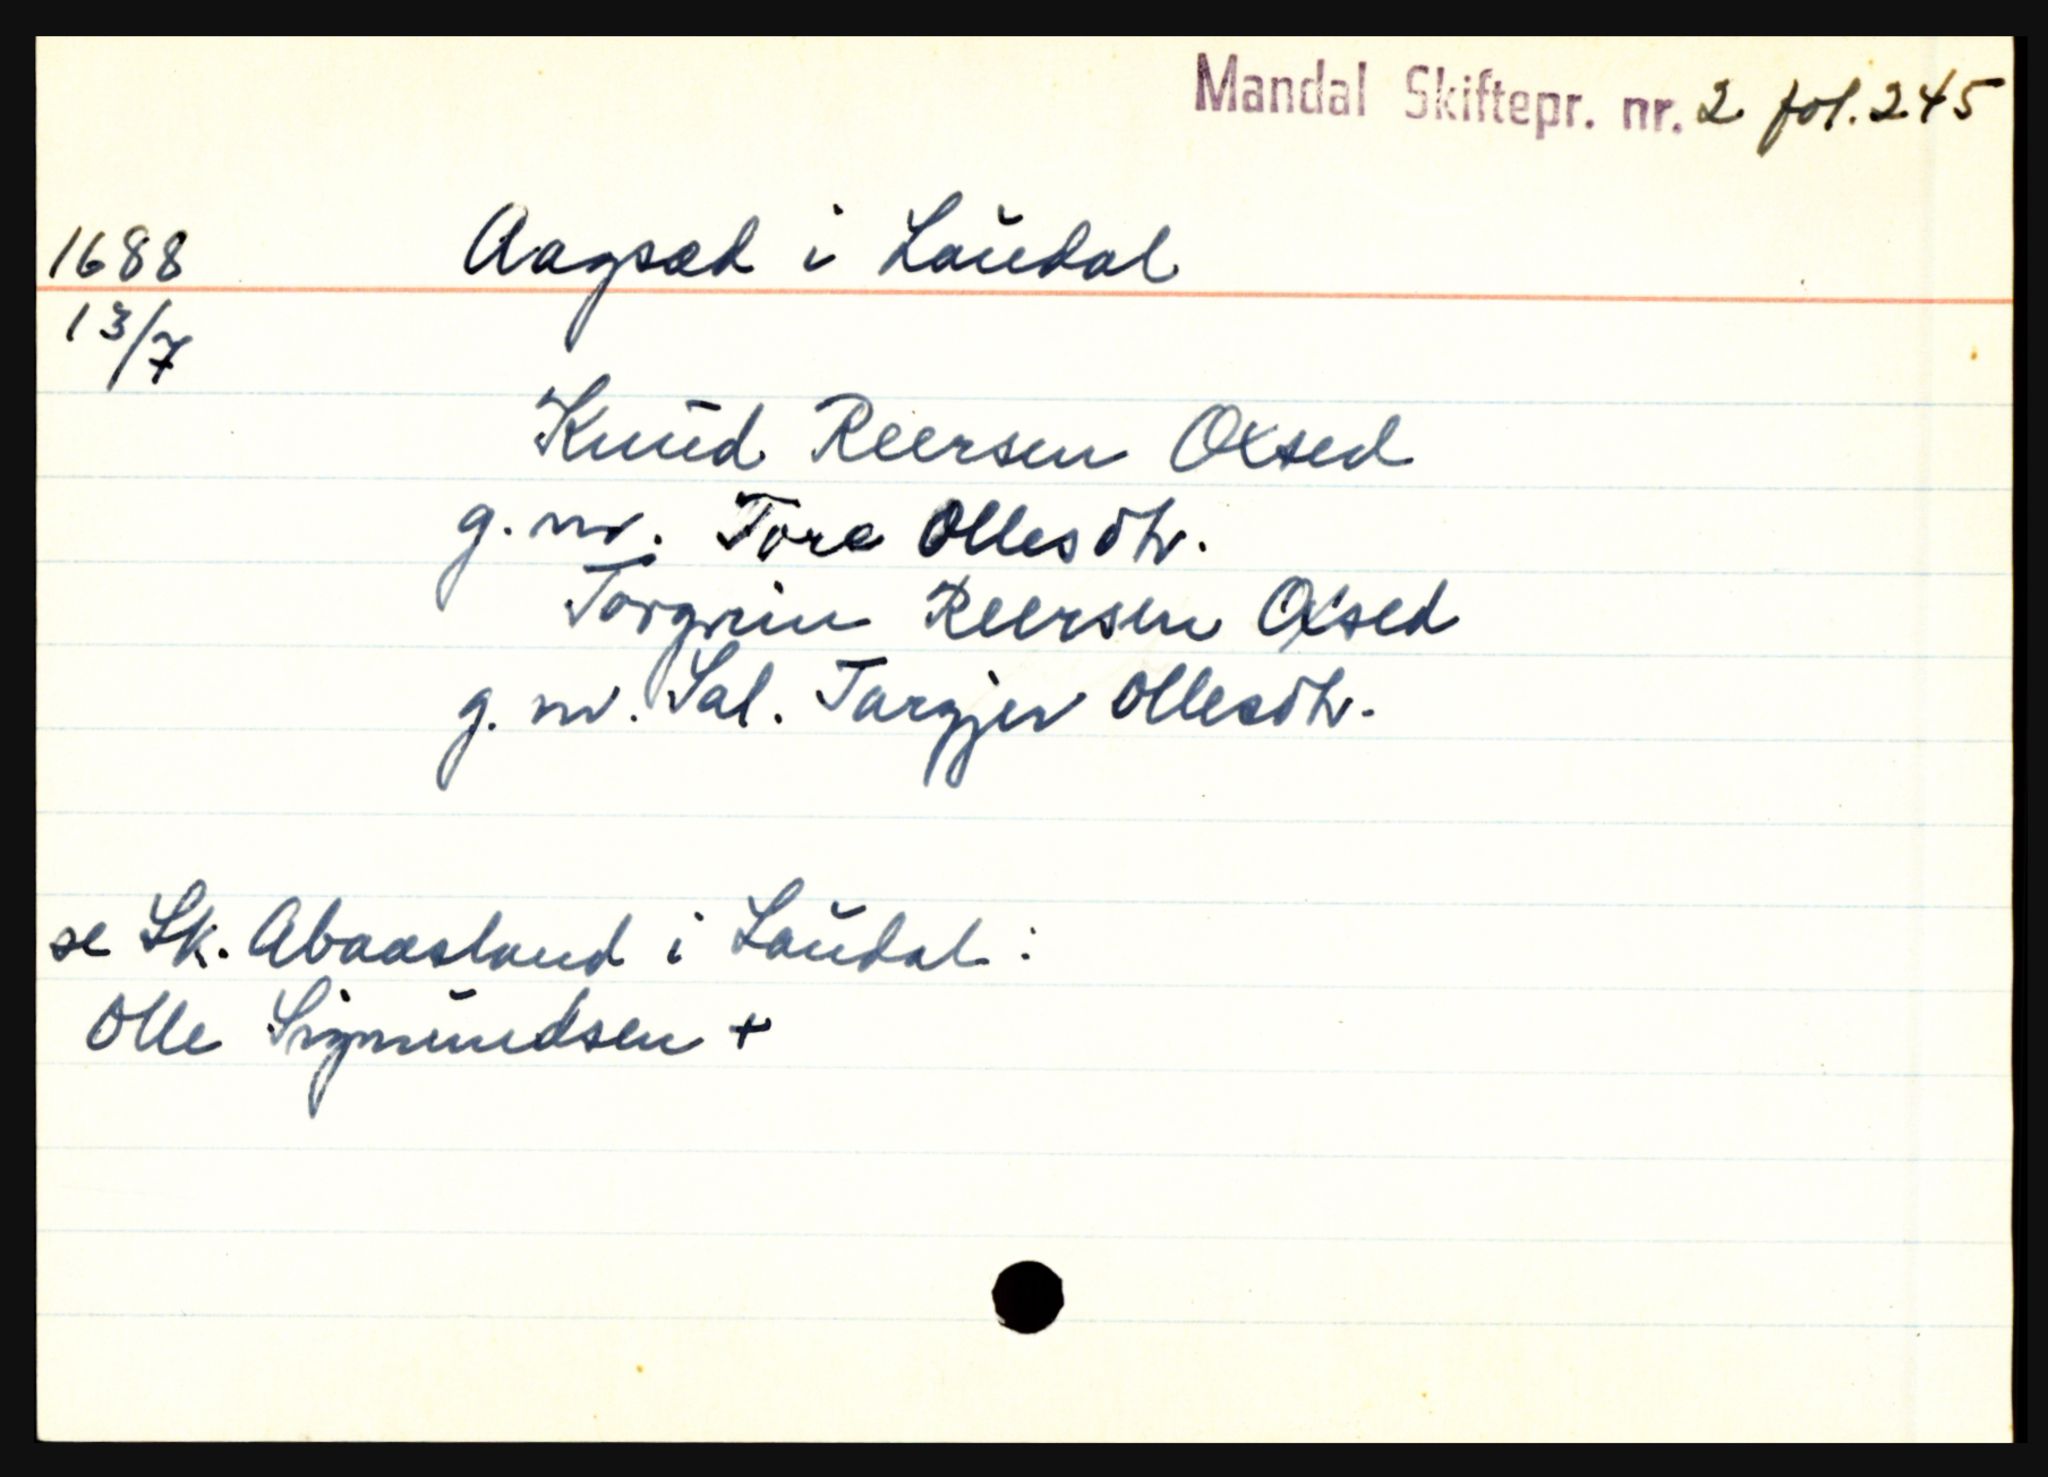 Mandal Skiftepr. nr. 2 fol. 245
1688 Aagsæd i Laudal
13/7
Knud Reersen Oxsed
g.m. Tore Ollesdtr.
Torgrim Reersen Oxsed
g.m. Sal. Targjer Ollesdtr.
se Sk. Abaasland i Laudal:
Olle Sigmundsen +